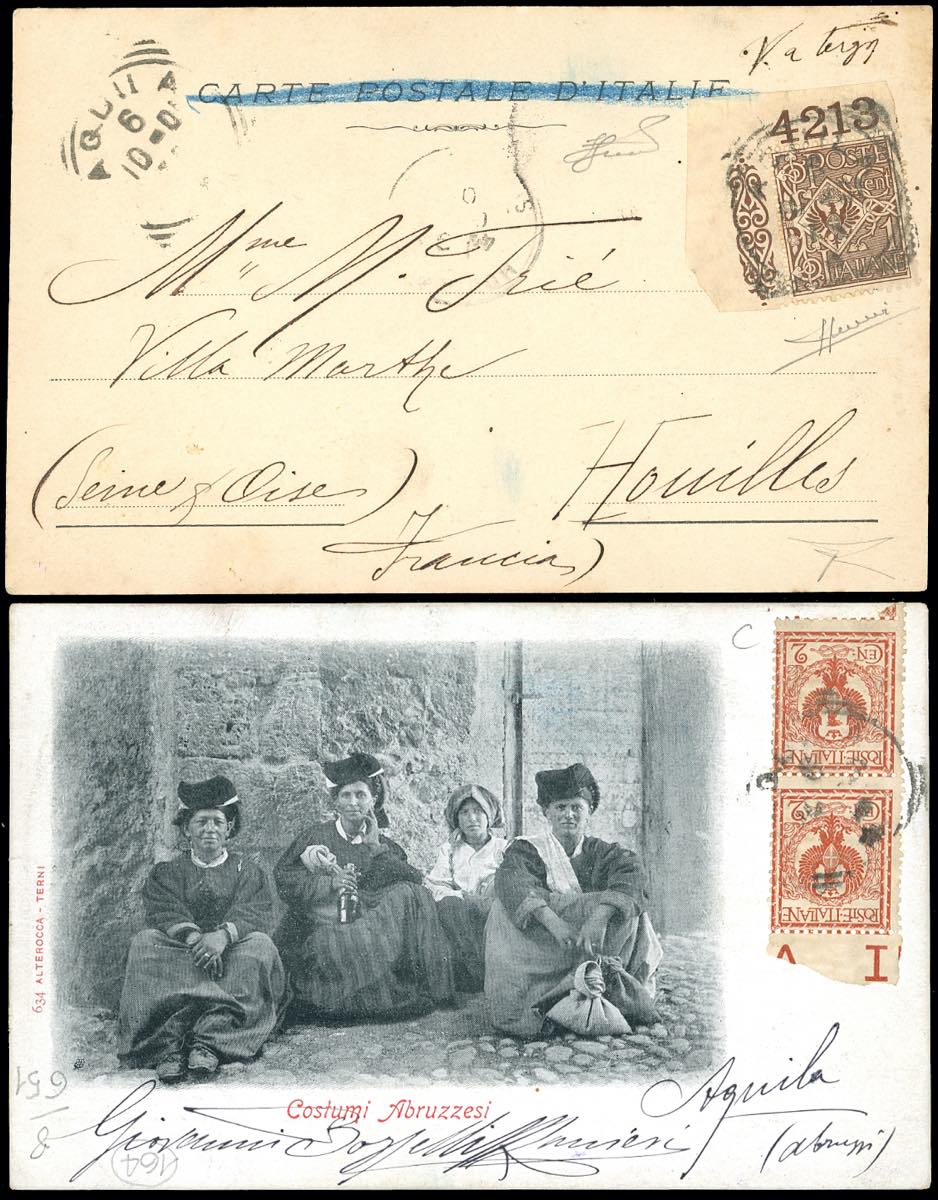 V. a tergo
CARTE POSTALE D'ITALIE
AQUILA
6
10-0
4213
POSTE
Cent.
1
ITALIANE
Mme M. Trié
Villa Marthe
(Seine & Oise)
Houilles
Francia)
C
CEN. 2
POSTE·ITALIANE
CEN. 2
POSTE·ITALIANE
I V
634 ALTEROCCA - TERNI
651
8
Costumi Abruzzesi
Aquila
Giovanni
Ranieri
(Abruzzi)
164